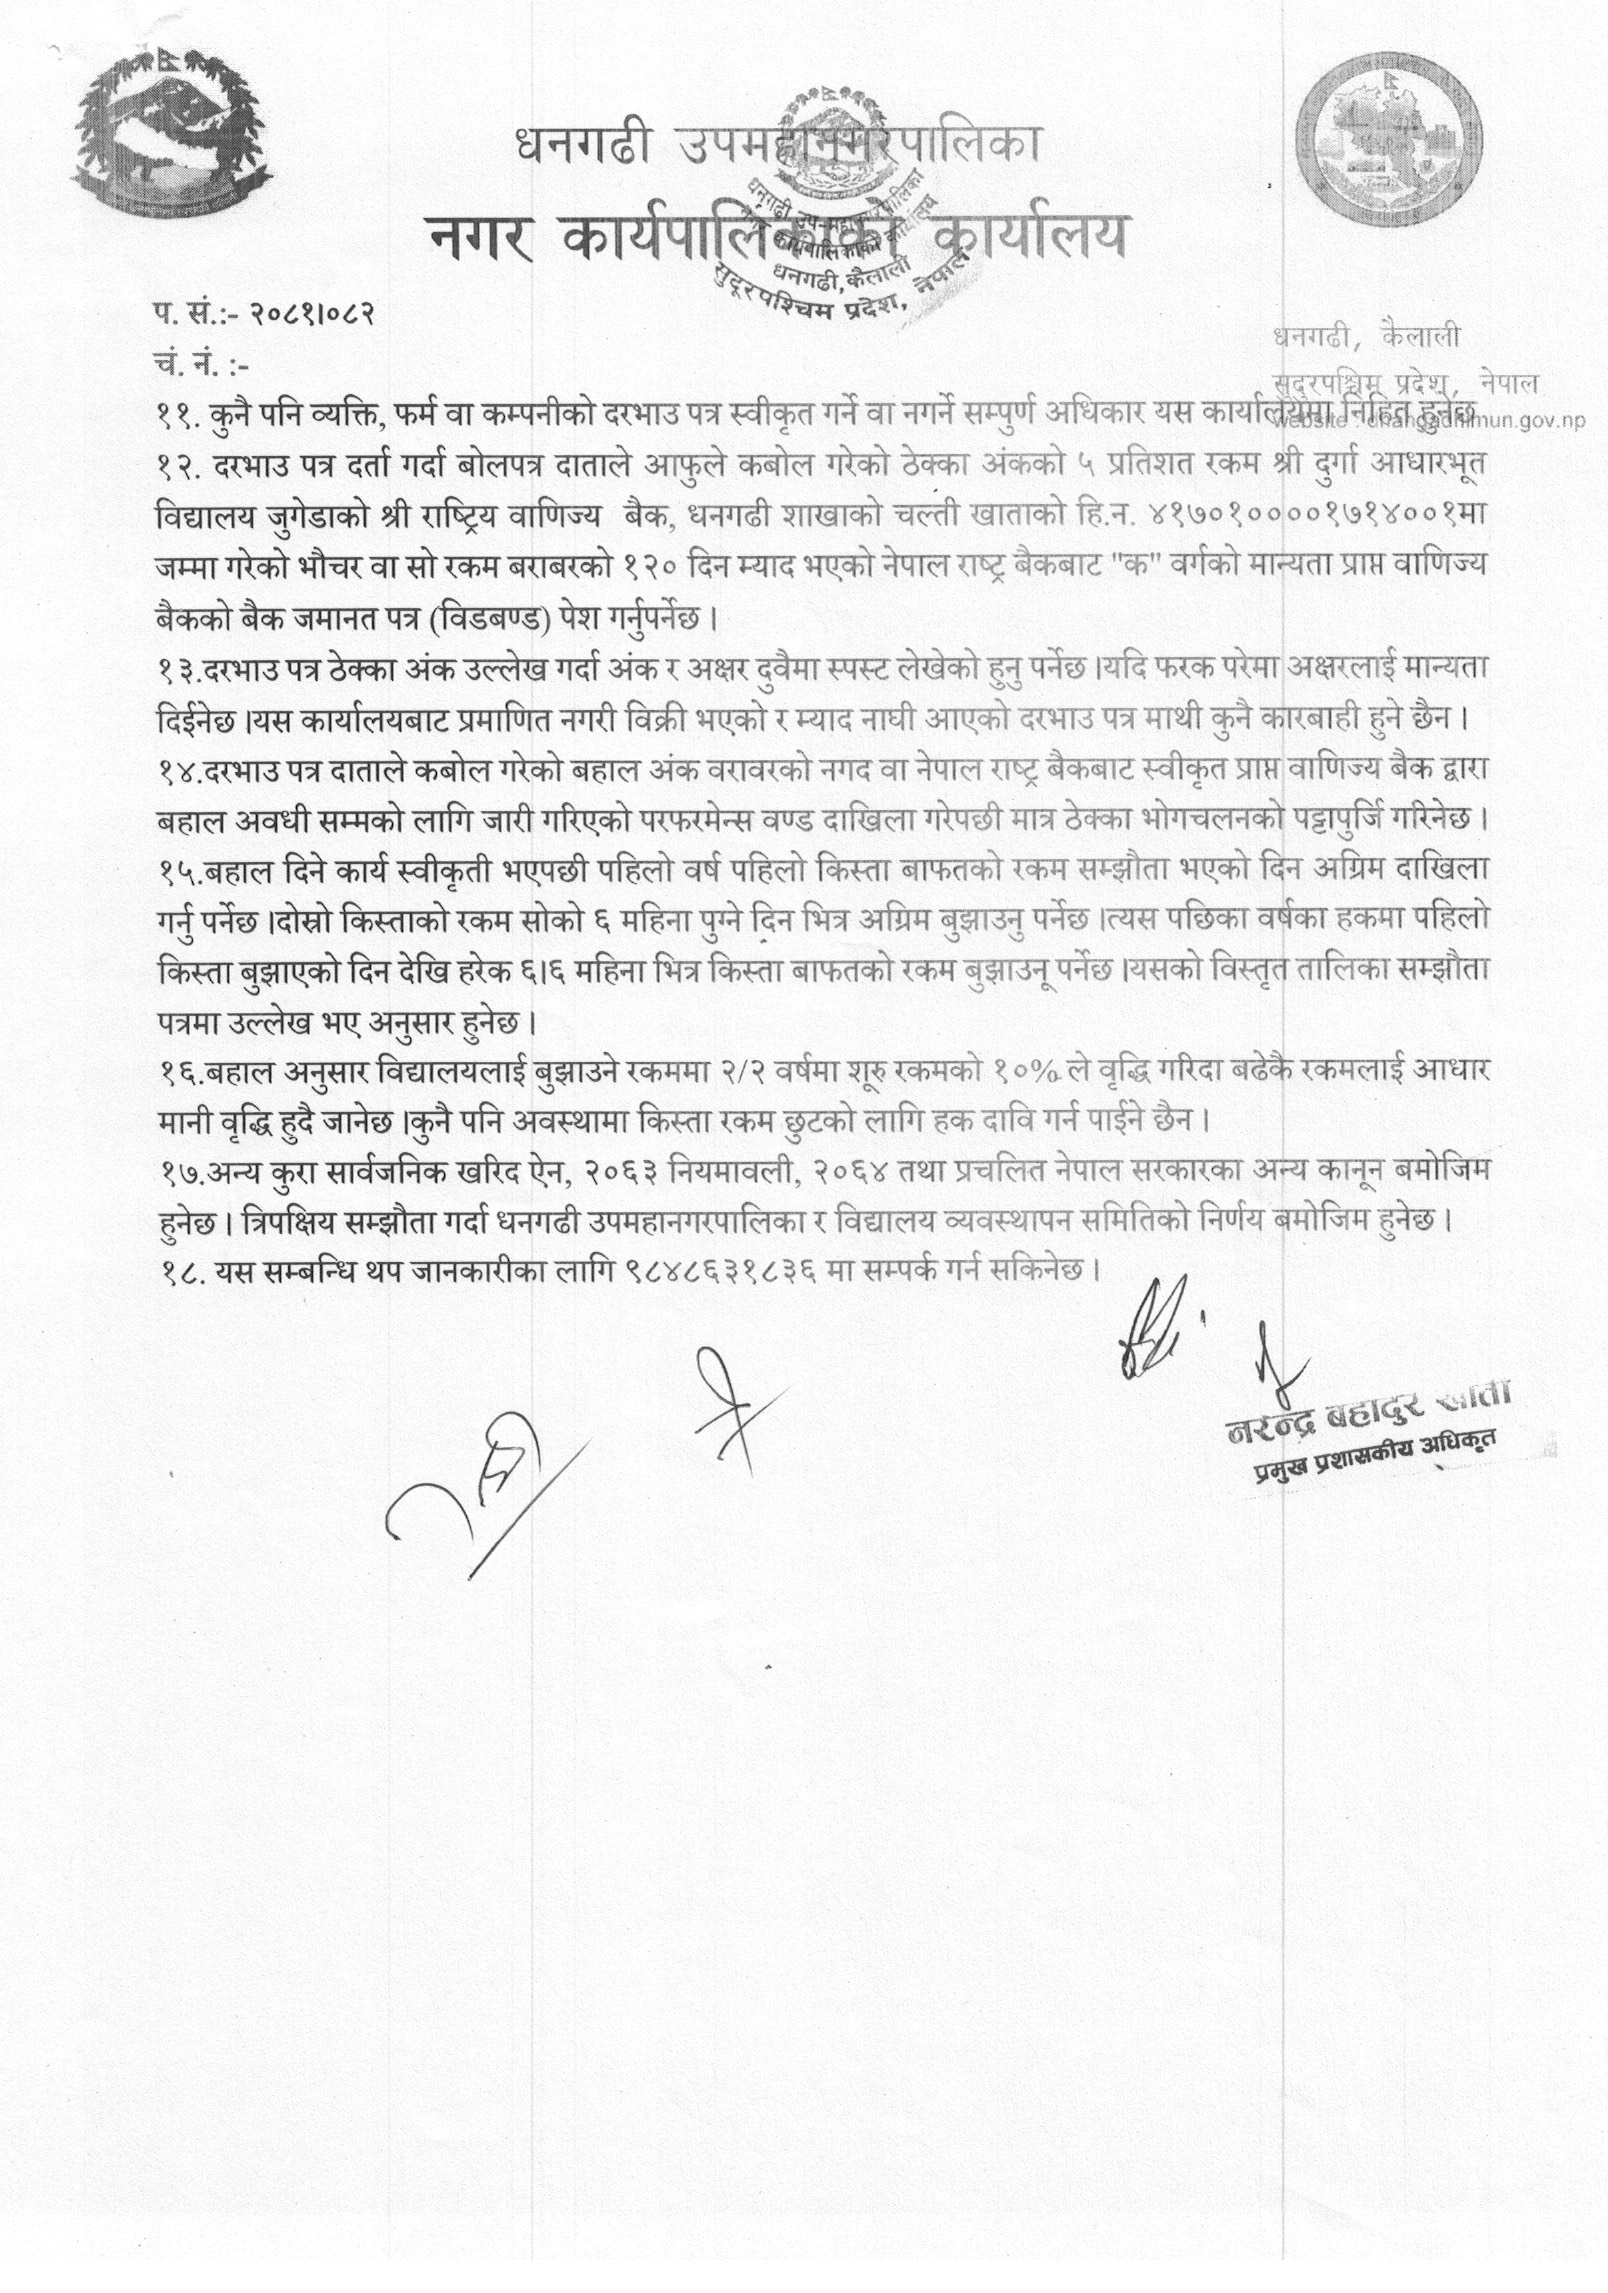 धनगढी उपमहानगरपालिका
नगर कार्यपालिकाको कार्यालय
धनगढी उप-महानगरपालिका
नगर कार्यपालिकाको कार्यालय
धनगढी, कैलाली
सुदूरपश्चिम प्रदेश, नेपाल
प. सं.:- २०८१।०८२
चं. नं. :-
धनगढी, कैलाली
सुदूरपश्चिम प्रदेश, नेपाल
website : dhangadhimun.gov.np
११. कुनै पनि व्यक्ति, फर्म वा कम्पनीको दरभाउ पत्र स्वीकृत गर्ने वा नगर्ने सम्पुर्ण अधिकार यस कार्यालयमा निहित हुनेछ
१२. दरभाउ पत्र दर्ता गर्दा बोलपत्र दाताले आफुले कबोल गरेको ठेक्का अंकको ५ प्रतिशत रकम श्री दुर्गा आधारभूत
विद्यालय जुगेडाको श्री राष्ट्रिय वाणिज्य बैक, धनगढी शाखाको चल्ती खाताको हि.न. ४१७०१००००१७१४००१मा
जम्मा गरेको भौचर वा सो रकम बराबरको १२० दिन म्याद भएको नेपाल राष्ट्र बैकबाट "क" वर्गको मान्यता प्राप्त वाणिज्य
बैकको बैक जमानत पत्र (विडबण्ड) पेश गर्नुपर्नेछ।
१३.दरभाउ पत्र ठेक्का अंक उल्लेख गर्दा अंक र अक्षर दुवैमा स्पस्ट लेखेको हुनु पर्नेछ।यदि फरक परेमा अक्षरलाई मान्यता
दिईनेछ।यस कार्यालयबाट प्रमाणित नगरी विक्री भएको र म्याद नाघी आएको दरभाउ पत्र माथी कुनै कारबाही हुने छैन।
१४.दरभाउ पत्र दाताले कबोल गरेको बहाल अंक वरावरको नगद वा नेपाल राष्ट्र बैकबाट स्वीकृत प्राप्त वाणिज्य बैक द्वारा
बहाल अवधी सम्मको लागि जारी गरिएको परफरमेन्स वण्ड दाखिला गरेपछी मात्र ठेक्का भोगचलनको पट्टापुर्जि गरिनेछ।
१५.बहाल दिने कार्य स्वीकृती भएपछी पहिलो वर्ष पहिलो किस्ता बाफतको रकम सम्झौता भएको दिन अग्रिम दाखिला
गर्नु पर्नेछ।दोस्रो किस्ताको रकम सोको ६ महिना पुग्ने दिन भित्र अग्रिम बुझाउनु पर्नेछ।त्यस पछिका वर्षका हकमा पहिलो
किस्ता बुझाएको दिन देखि हरेक ६।६ महिना भित्र किस्ता बाफतको रकम बुझाउनू पर्नेछ।यसको विस्तृत तालिका सम्झौता
पत्रमा उल्लेख भए अनुसार हुनेछ।
१६.बहाल अनुसार विद्यालयलाई बुझाउने रकममा २/२ वर्षमा शूरु रकमको १०% ले वृद्धि गरिदा बढेकै रकमलाई आधार
मानी वृद्धि हुदै जानेछ।कुनै पनि अवस्थामा किस्ता रकम छुटको लागि हक दावि गर्न पाईने छैन।
१७.अन्य कुरा सार्वजनिक खरिद ऐन, २०६३ नियमावली, २०६४ तथा प्रचलित नेपाल सरकारका अन्य कानून बमोजिम
हुनेछ। त्रिपक्षिय सम्झौता गर्दा धनगढी उपमहानगरपालिका र विद्यालय व्यवस्थापन समितिको निर्णय बमोजिम हुनेछ।
१८. यस सम्बन्धि थप जानकारीका लागि ९८४८६३१८३६ मा सम्पर्क गर्न सकिनेछ।
नरेन्द्र बहादुर
प्रमुख प्रशासकीय अधिकृत